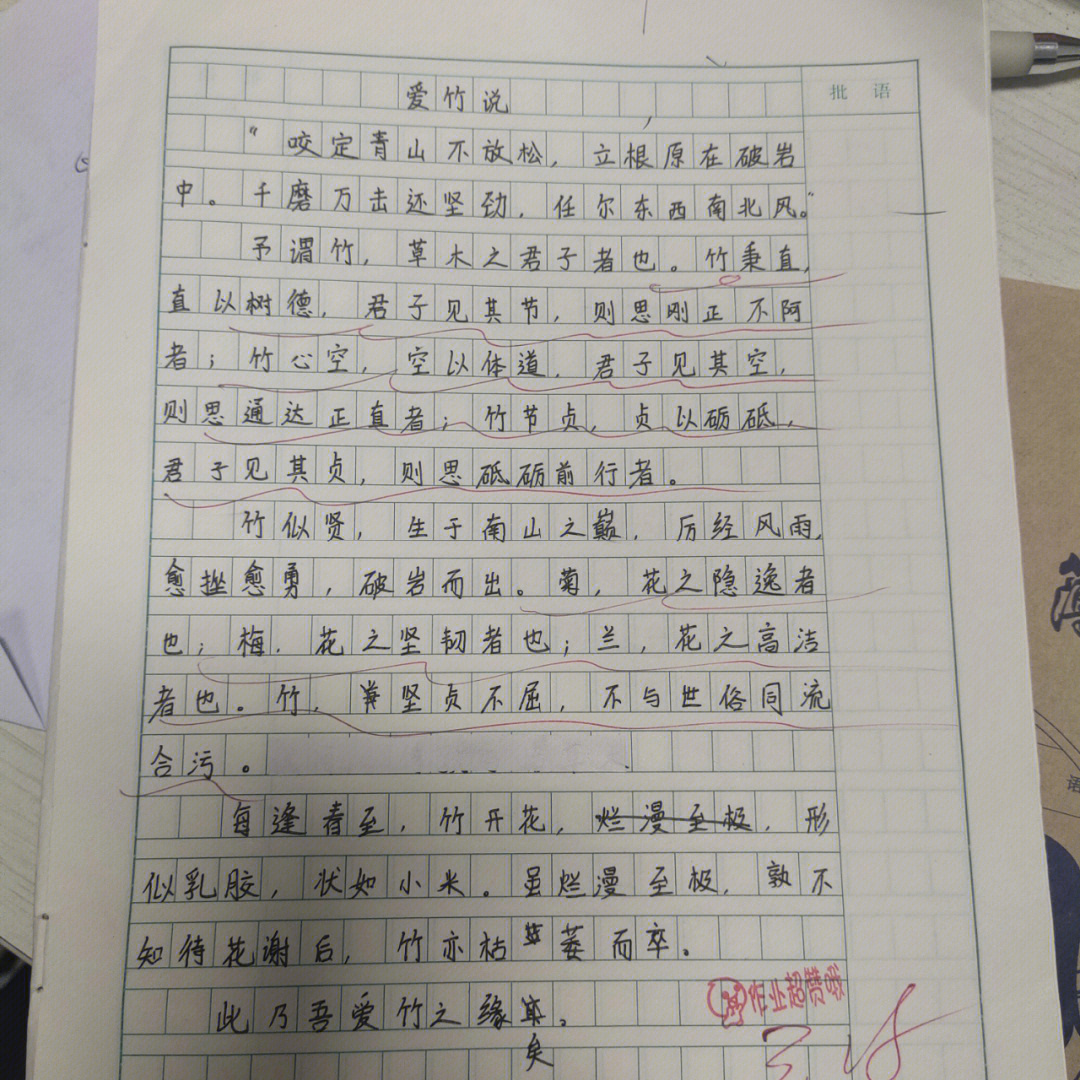 批语
爱竹说
“咬定青山不放松，立根原在破岩
中。千磨万击还坚劲，任尔东西南北风。”
予谓竹，草木之君子者也。竹秉直，
直以树德，君子见其节，则思刚正不阿
者；竹心空，空以体道，君子见其空，
则思通达正直者；竹节贞，贞以砺砥，
君子见其贞，则思砥砺前行者。
竹似贤，生于南山之巅，厉经风雨，
愈挫愈勇，破岩而出。菊，花之隐逸者
也；梅，花之坚韧者也；兰，花之高洁
者也。竹，坚贞不屈，不与世俗同流
合污。
每逢春至，竹开花，烂漫至极，形
似乳胶，状如小米。虽烂漫至极，孰不
知待花谢后，竹亦枯萎而卒。
此乃吾爱竹之缘矣。
作业超赞哦
语